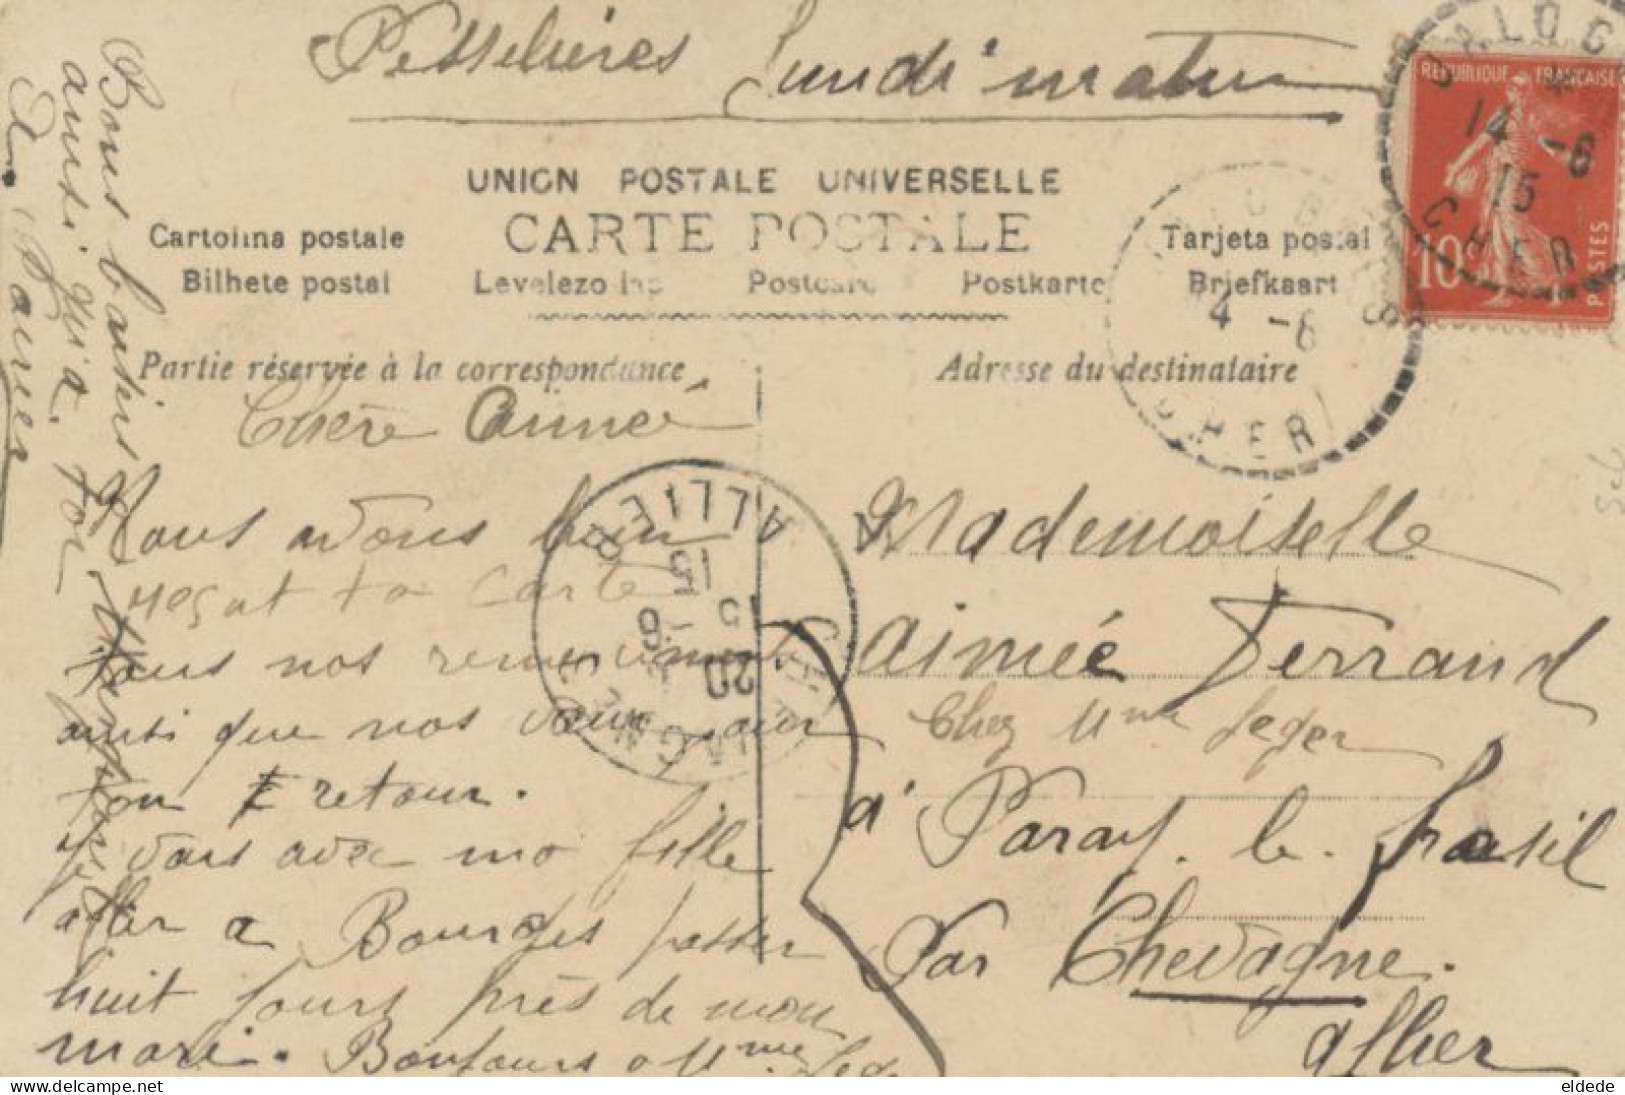 Pesselières Lundi matin
UNION POSTALE UNIVERSELLE
CARTE POSTALE
Cartolina postale
Tarjeta postal
Bilhete postal
Levelezo lap
Postcard
Postkarte
Briefkaart
Partie réservée à la correspondance
Adresse du destinataire
REPUBLIQUE FRANÇAISE
10c
POSTES
14 -6
15
CHER
4 -6
CHER
Chère Aimée
Nous avons bien
reçut ta carte
tous nos remerciments
ainsi que nos vœux pour
ton retour.
Je vais avec ma fille
aller a Bourges passer
huit jours près de mon
mari. Bonjours a Mme Leger
Bons baisers
ainsi qu'a
ALLIER
15
15
20 -6
CHEVAGNES
Mademoiselle
Aimée Ferrand
Chez Mme Leger
a' Paray. le. frasil
Par Chevagne.
Allier
eldede